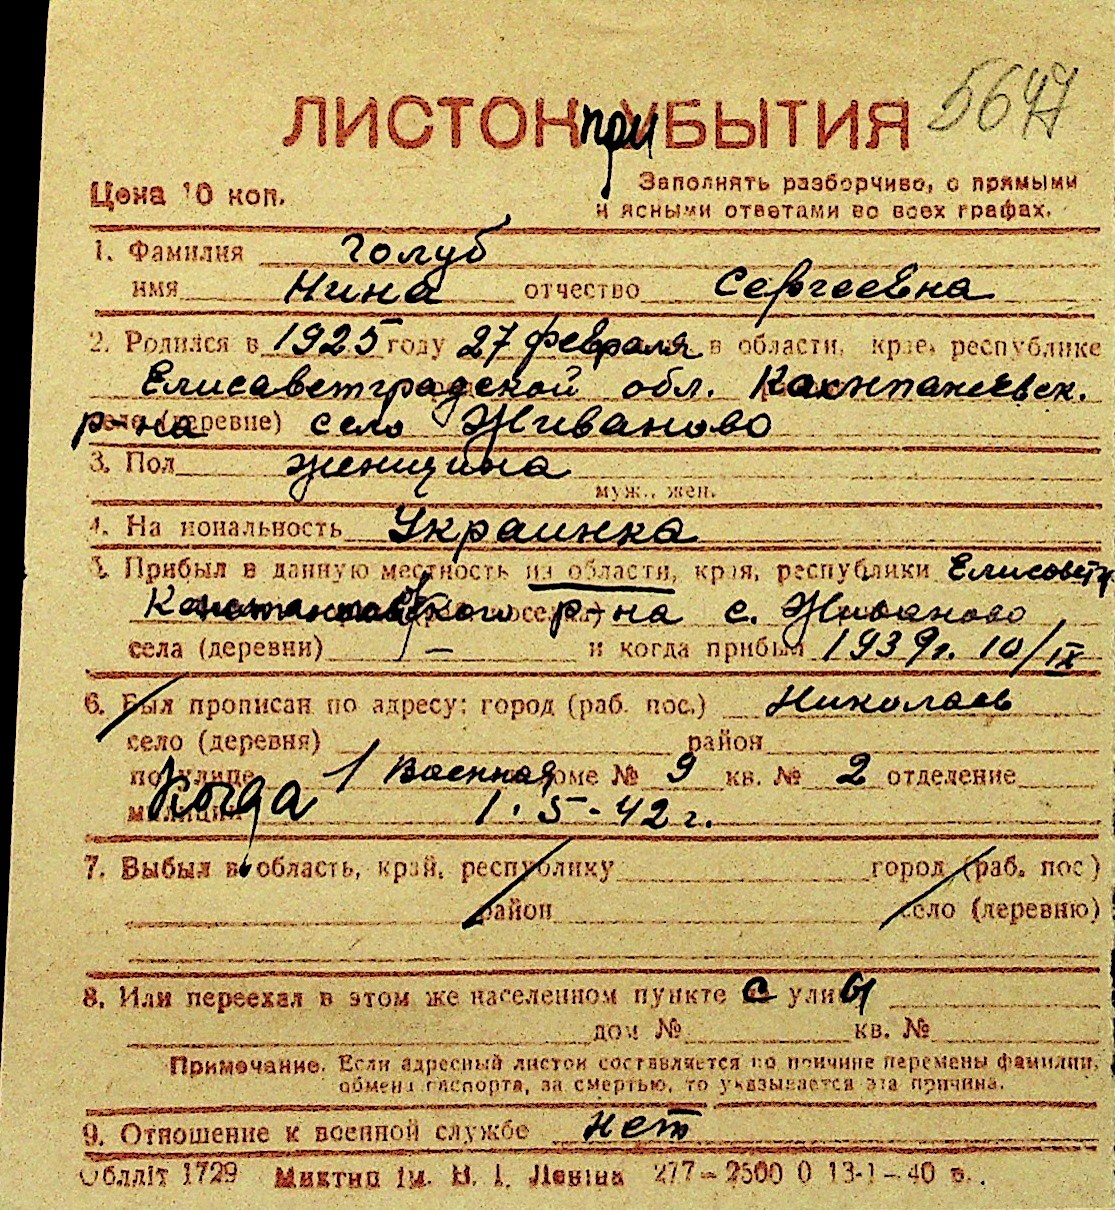 5647
ЛИСТОК при БЫТИЯ
Цена 10 коп.
Заполнять разборчиво, с прямыми
и ясными ответами во всех графах.
1. Фамилия Голуб
имя Нина отчество Сергеевна
2. Родился в 1925 году 27 февраля в области, крае, республике
Елисаветградской обл.
р-на село (деревне) село Живаново
3. Пол женщина
муж., жен.
4. Национальность Украинка
5. Прибыл в данную местность из области, края, республики Елисаветг
р-на с. Живаново
села (деревни) — и когда прибыл 1939г. 10/IX
6. Был прописан по адресу: город (раб. пос.) Николаев
село (деревня) район
по улице 1 Военная доме № 9 кв. № 2 отделение
милиции Когда 1.5-42 г.
7. Выбыл в область, край, республику город (раб. пос)
район село (деревню)
8. Или переехал в этом же населенном пункте с улицы
дом № кв. №
Примечание. Если адресный листок составляется по причине перемены фамилии,
обмена паспорта, за смертью, то указывается эта причина.
9. Отношение к военной службе нет
Обллiт 1729 Миктип iм. В. I. Ленiна 277—2500 0 13-1-40 в.